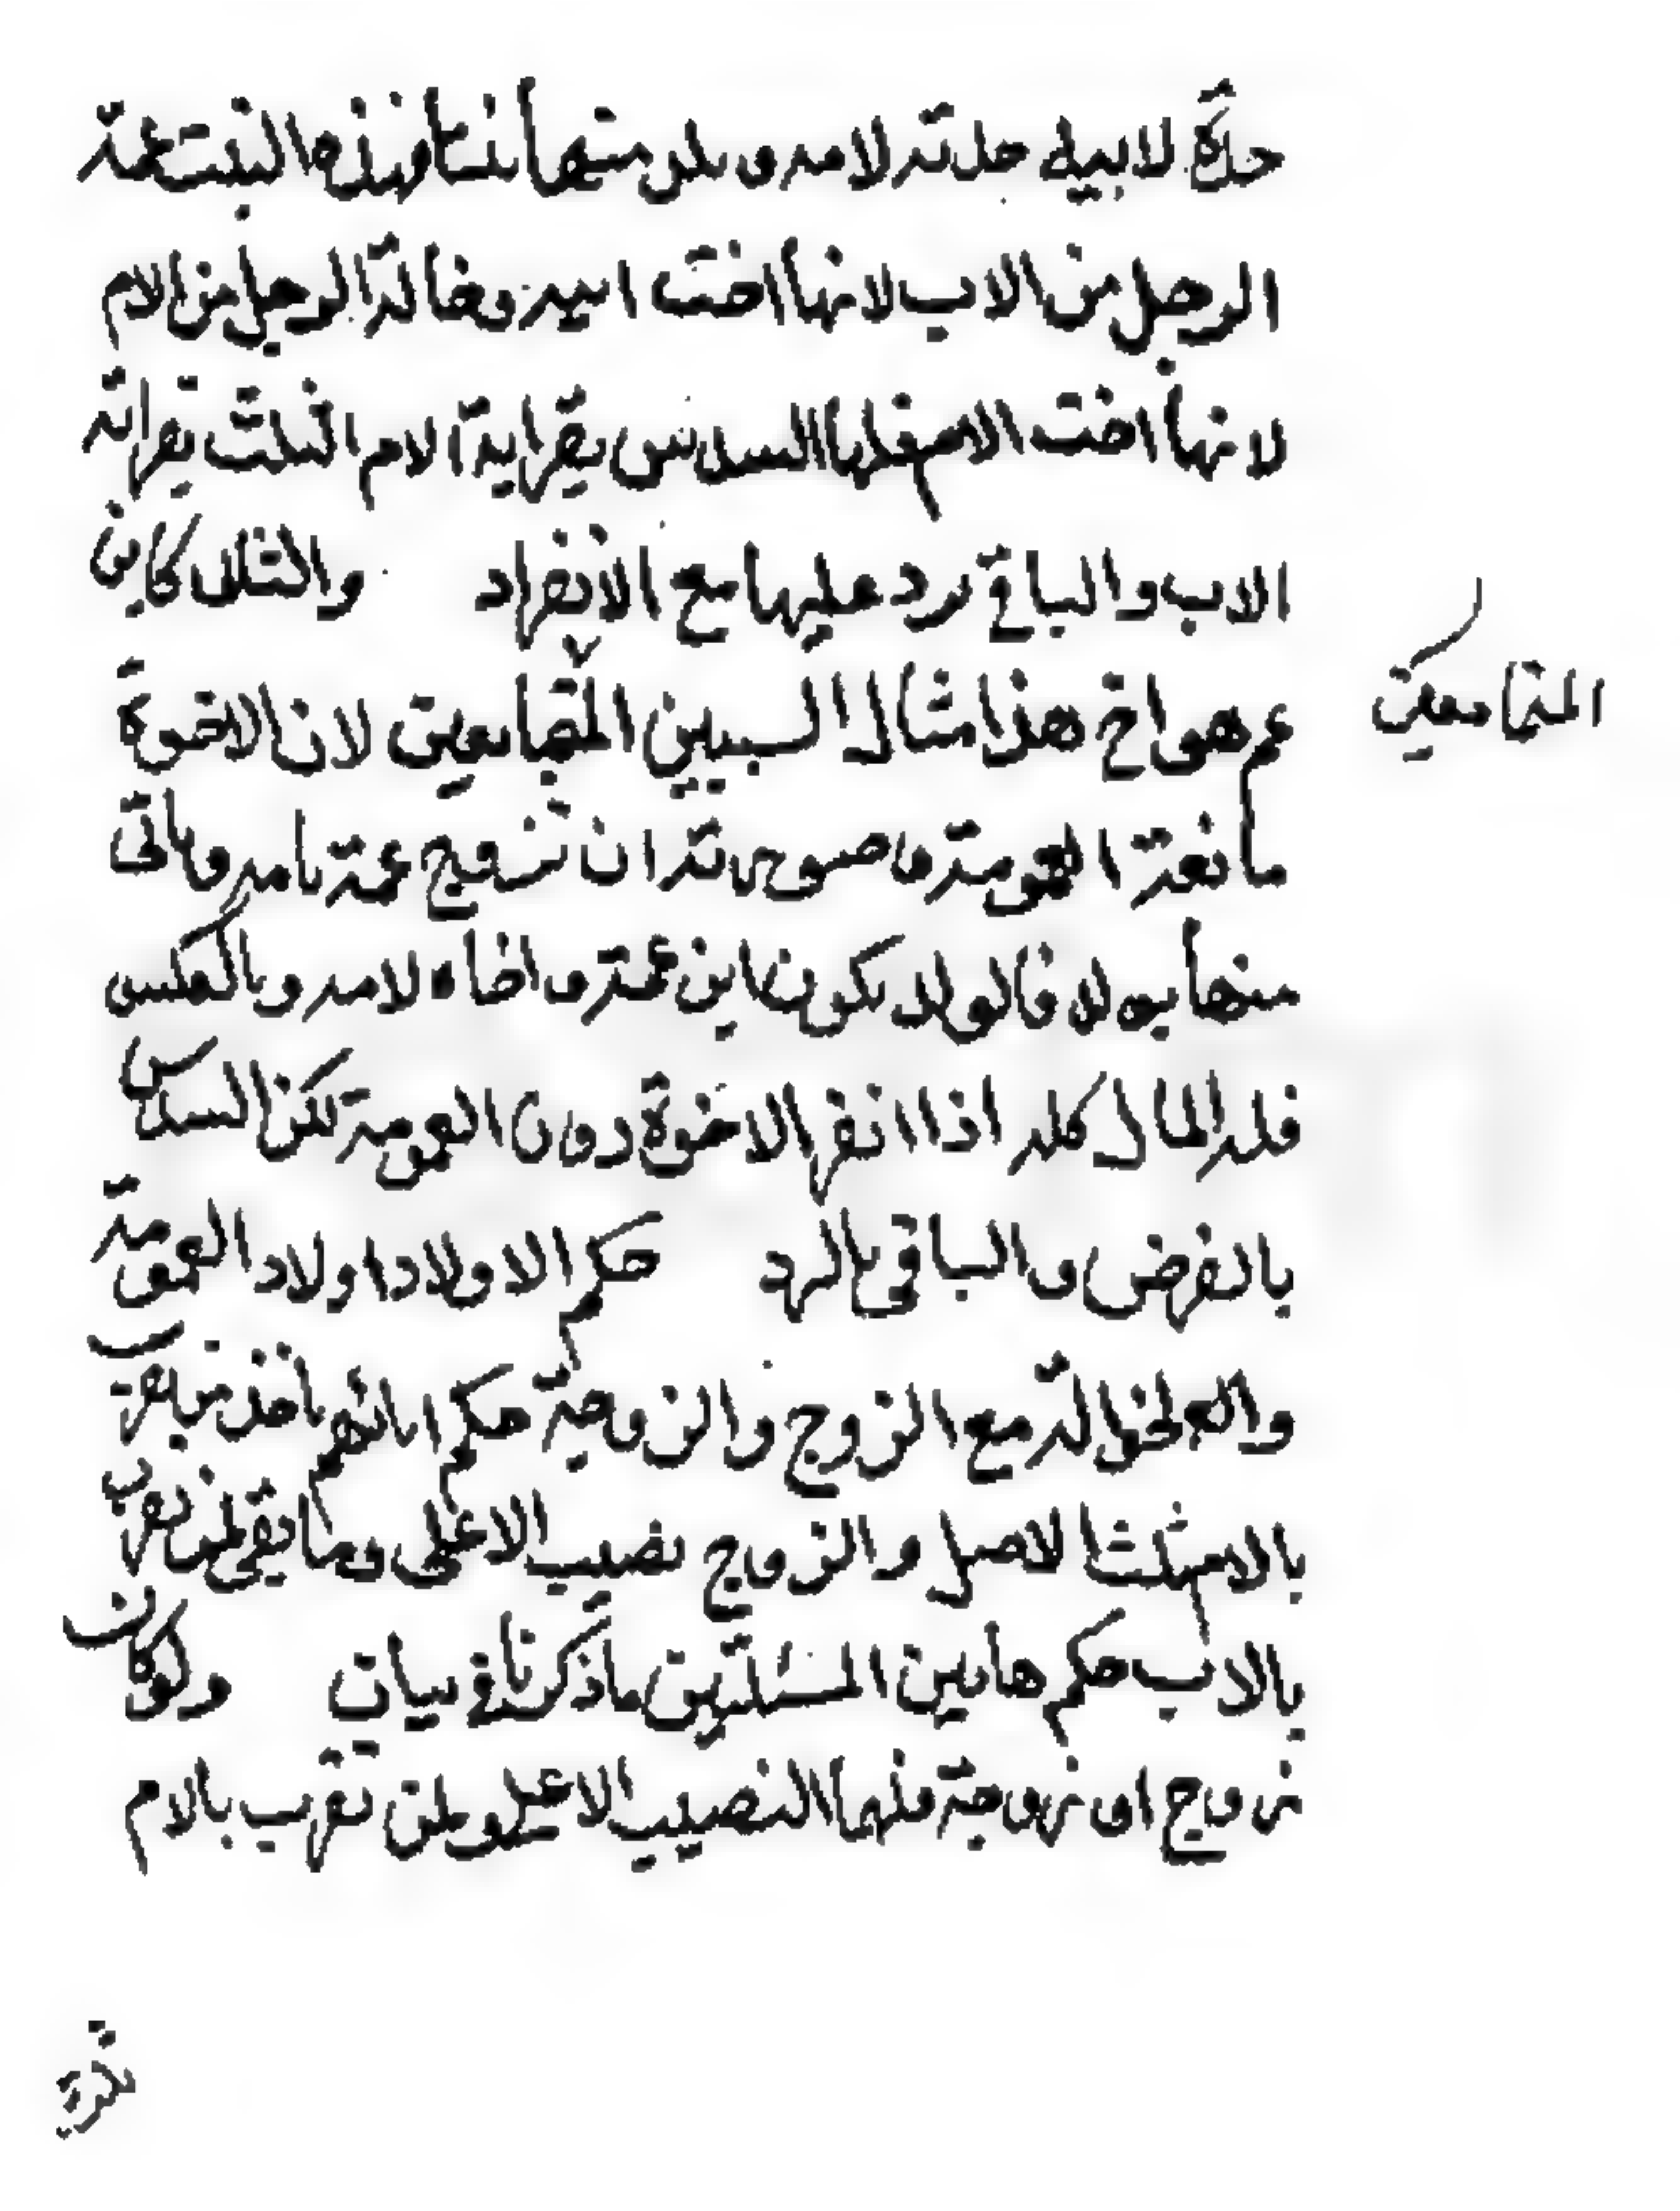 جدة لابيه جدته لامه و يكون منها بنتا فهذه البنت عمة
الرجل من الاب لانها اخت ابيه وخالة الرجل من الام
لانها اخت الام فلها السدس بقرابة الام الثلث بقرابة
الاب والباقي يرد عليها مع الانفراد والثالث كابن
عم هو اخ هذا مثال السببين المتجامعين لان الاخوة
المتجامعين
مانعة العمومة وصورته ان تزوج عمه بامه وياتى
منها بولد فالولد يكون ابن عمه واخاه لامه وبالعكس
فله المال كله اذا انفرد الاخوة دون العمومة لكن السدس
بالفرض والباقي بالرد حكم الاولاد اولاد العمومة
والخوالة مع الزوج والزوجة حكم ابائهم ياخذ من يتقرب
بالام ثلث الاصل والزوج نصيب الاعلى وما بقي لمن يتقرب
بالاب حكم هاتين المسئلتين ما ذكرنا في بيان ولو كان
زوج او زوجة فلهما النصيب الاعلى ولمن تقرب بالام